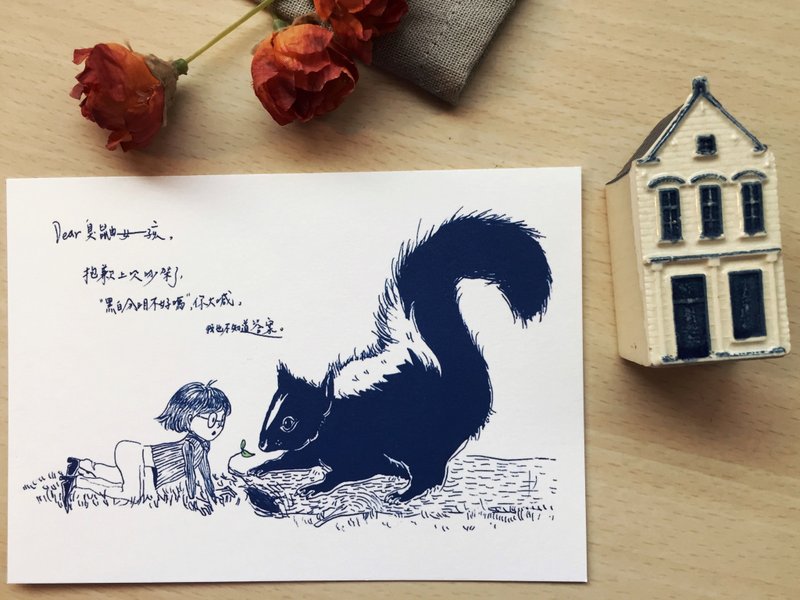 Dear 臭鼬女孩,
抱歉上次吵架,
"黑白分明不好嗎",你大喊。
我也不知道答案。